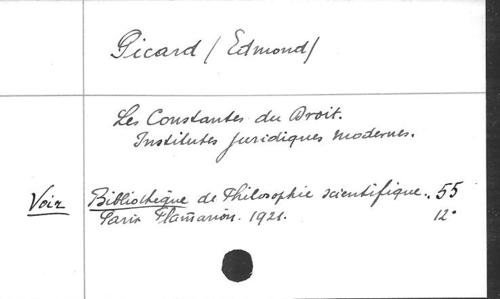 Picard (Edmond)
Les Constantes du Droit.
Institutes juridiques modernes.
Voir Bibliothèque de Philosophie scientifique. 55
Paris Flam̄arion. 1921. 12°